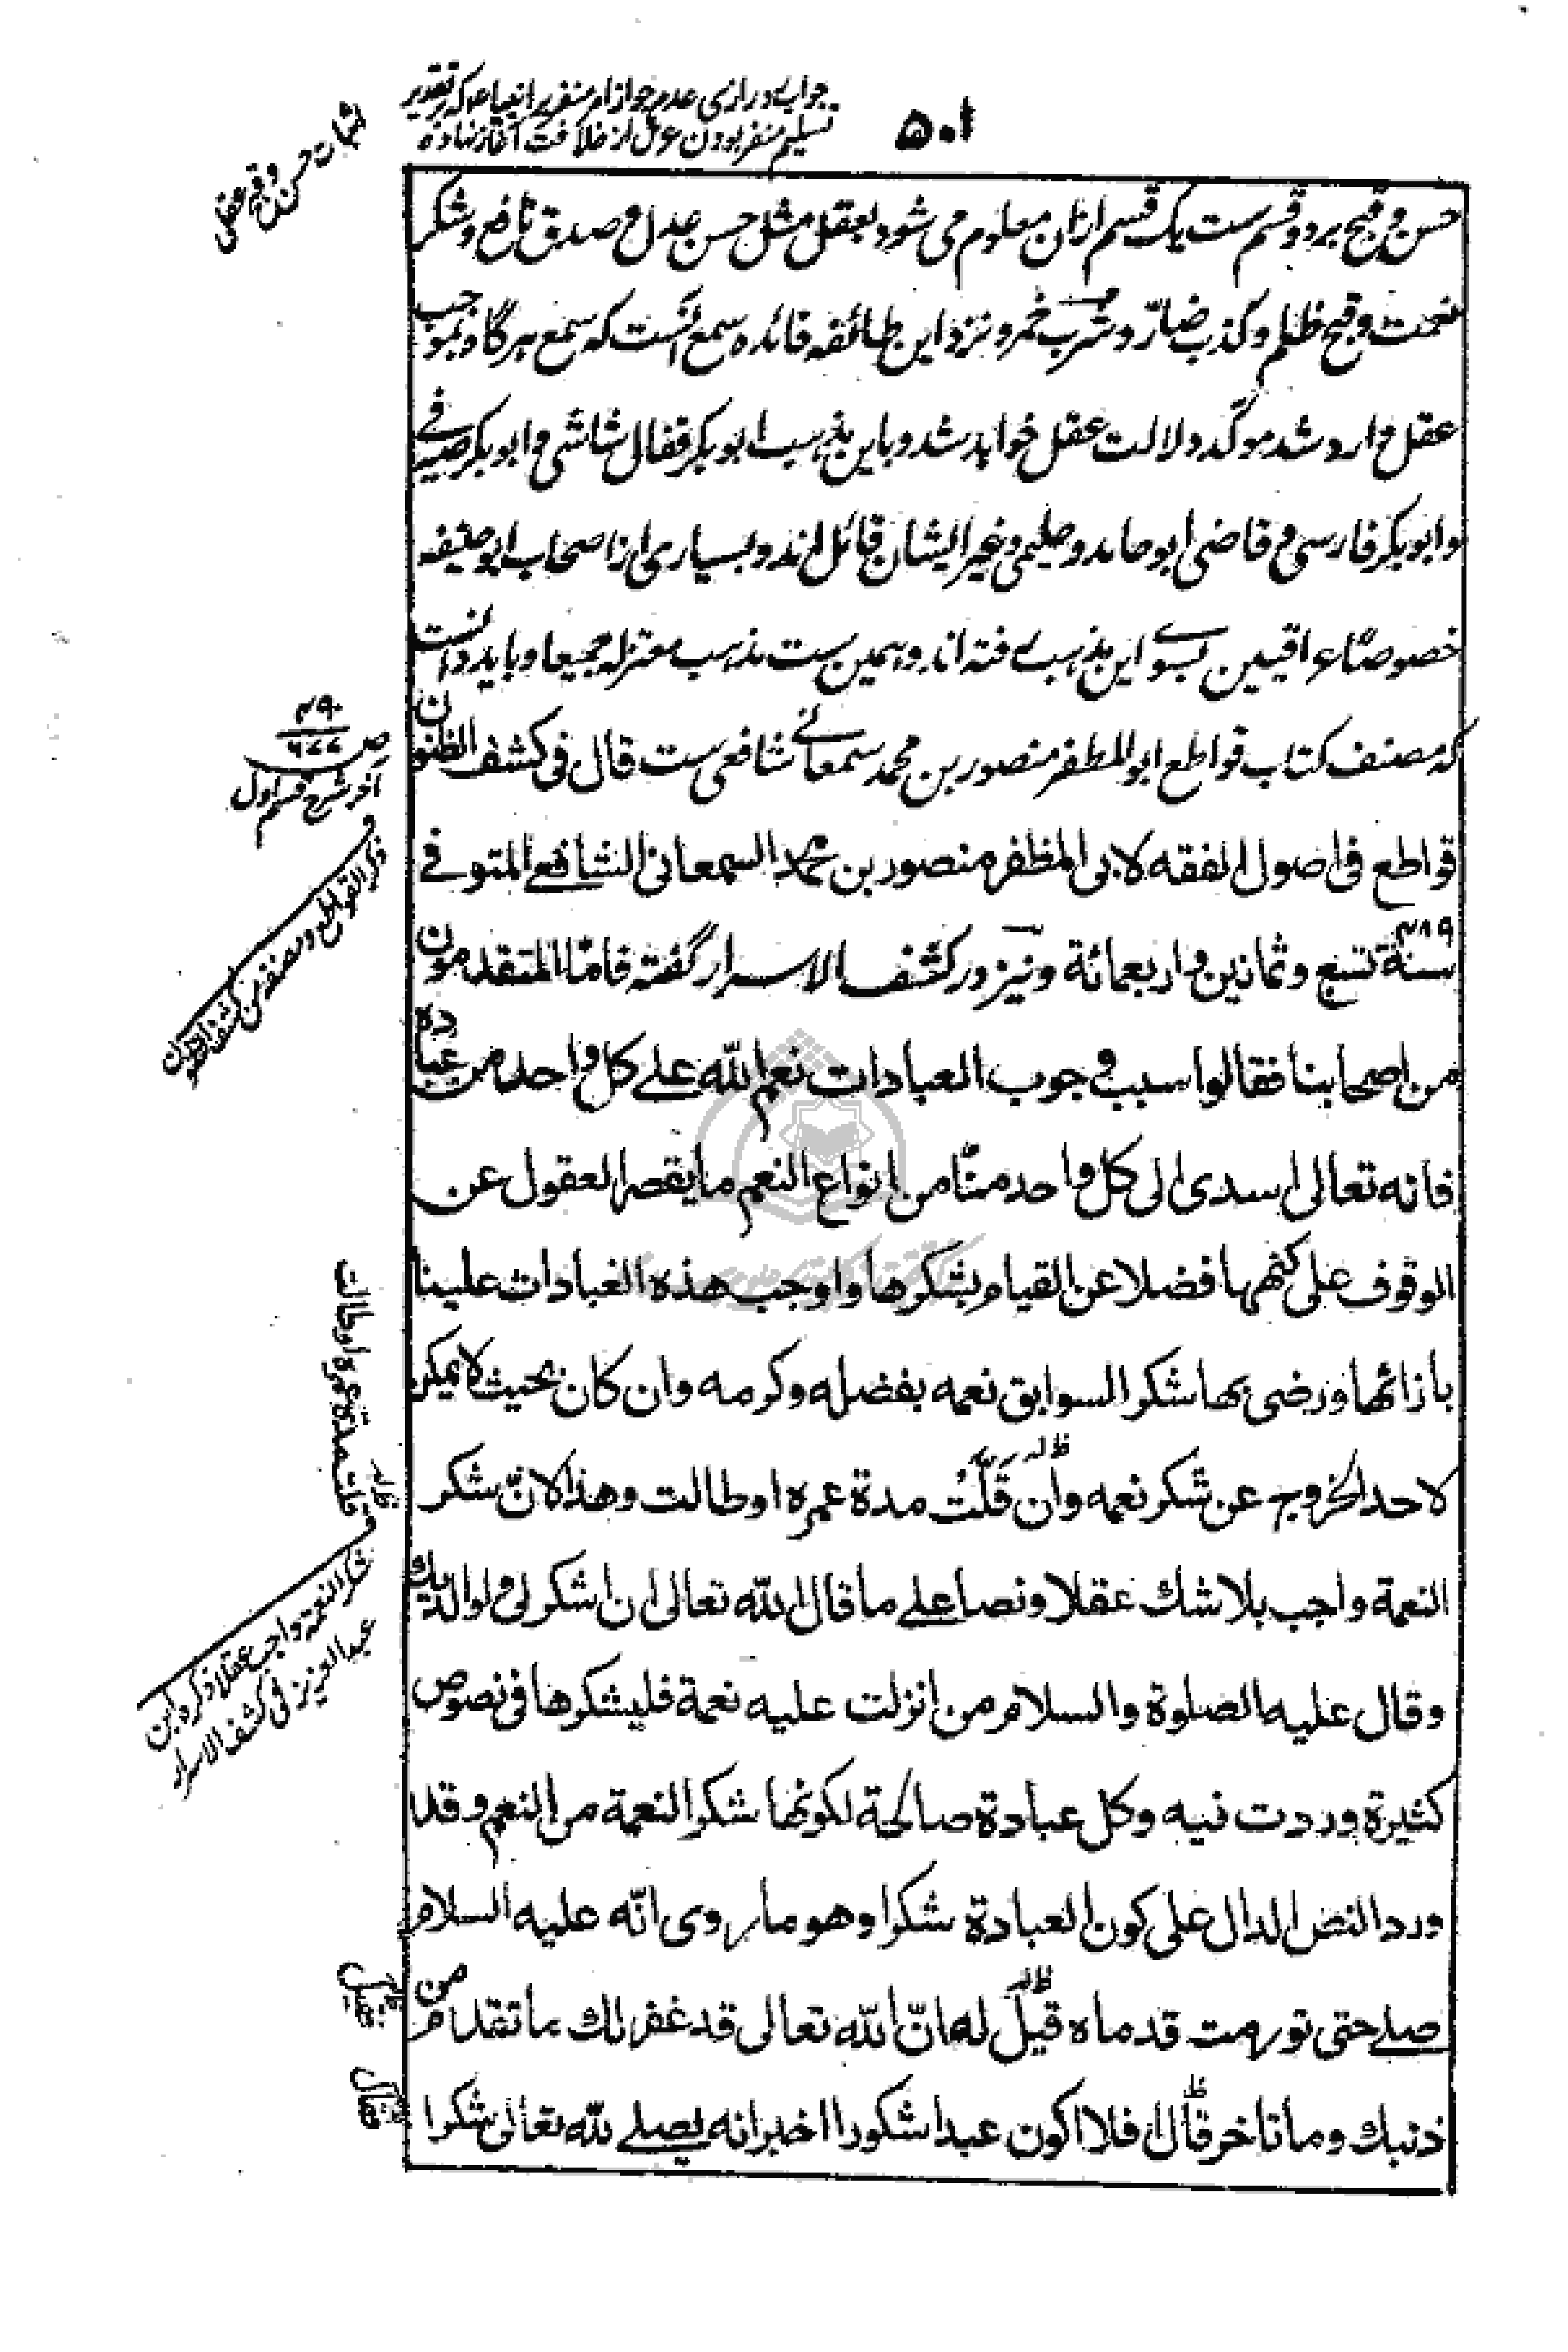 ۵۰۱
جواب رازی عدم جواز امر منفر بر انبیاء که بر تقدیر
تسلیم منفر بودن عزل از خلافت آغاز نهاده
اثبات حسن و قبح عقلی
حسن و قبح بر دو قسم ست یک قسم ازان معلوم می شود بعقل مثل حسن عدل و صدق نافع و شکر
نعمت و قبح ظلم و کذب ضارّ و شرب خمر و نزد این طائفه فائده سمع آنست که سمع هرگاه بموجب
عقل وارد شد موکّد دلالت عقل خواهد شد و باین مذهب ابو بکر قفال شاشی و ابو بکر صیرفے
و ابو بکر فارسی و قاضی ابو حامد و حلیمی و غیر ایشان قائل اند و بسیاری از اصحاب ابو حنیفه
خصوصًا عراقیین بسوے این مذهب رفته اند و همین ست مذهب معتزله جمیعا و باید دانست
که مصنف کتاب قواطع ابو المظفر منصور بن محمد سمعانے شافعی ست قال فی کشف الظنون
قواطع فی اصول الفقه لابی المظفر منصور بن محمد السمعانی الشافعے المتوفے
۴۸۹
سنة تسع وثمانین واربعمائة ونیز در کشف الاسرار گفته فامّا المتقدمون
من اصحابنا فقالوا سبب وجوب العبادات نعم الله علے کل واحد من عباده
فانه تعالی اسدی الی کل واحد منّا من انواع النعم ما یقصر العقول عن
الوقوف علی کنهها فضلا عن القیام بشکرها واوجب هذه العبادات علینا
بازائها ورضی بها شکرا لسوابق نعمه بفضله وکرمه وان کان بحیث لا یمکن
لاحد الخروج عن شکر نعمه وان قلّت مدة عمره او طالت وهذا لانّ شکر
النعمة واجب بلا شك عقلا ونصا علے ما قال الله تعالی ان اشکر لی ولوالدیك
وقال علیه الصلوة والسلام من انزلت علیه نعمة فلیشکرها فی نصوص
کثیرة وردت فیه وکل عبادة صالحة لکونها شکرا لنعمة من النعم وقد
ورد النص الدال علی کون العبادة شکرا وهو ما روی انّه علیه السلام
صلے حتی تورمت قدماه قیل له انّ الله تعالی قد غفر لك ما تقدم من
ذنبك وما تاخر قال افلا اکون عبدا شکورا اخبر انه یصلے لله تعالی شکرا
آخر شرح قسم اول
ذکر القواطع ومصنفه من کشف الظنون
قلت مدة عمره او طالت
شکر النعمة واجب عقلا ذکره ابن
عبد العزیز فی کشف الاسرار
فقیل
فقال